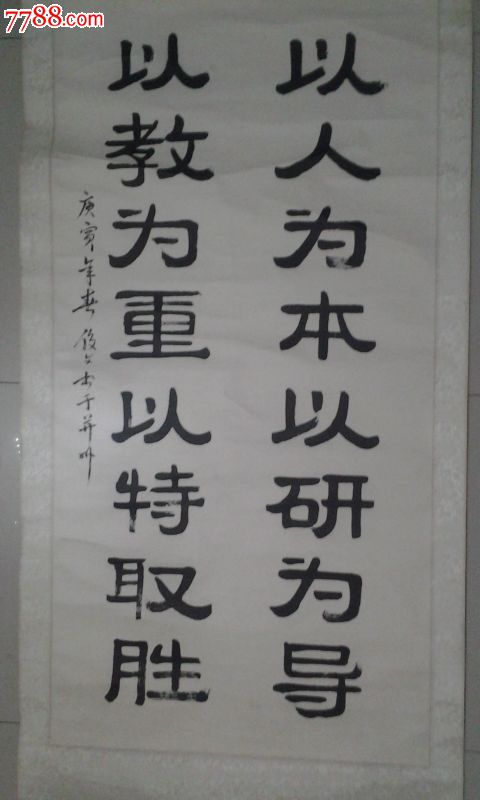 7788.com
以人为本以研为导
以教为重以特取胜
庚寅年春俊书于并州